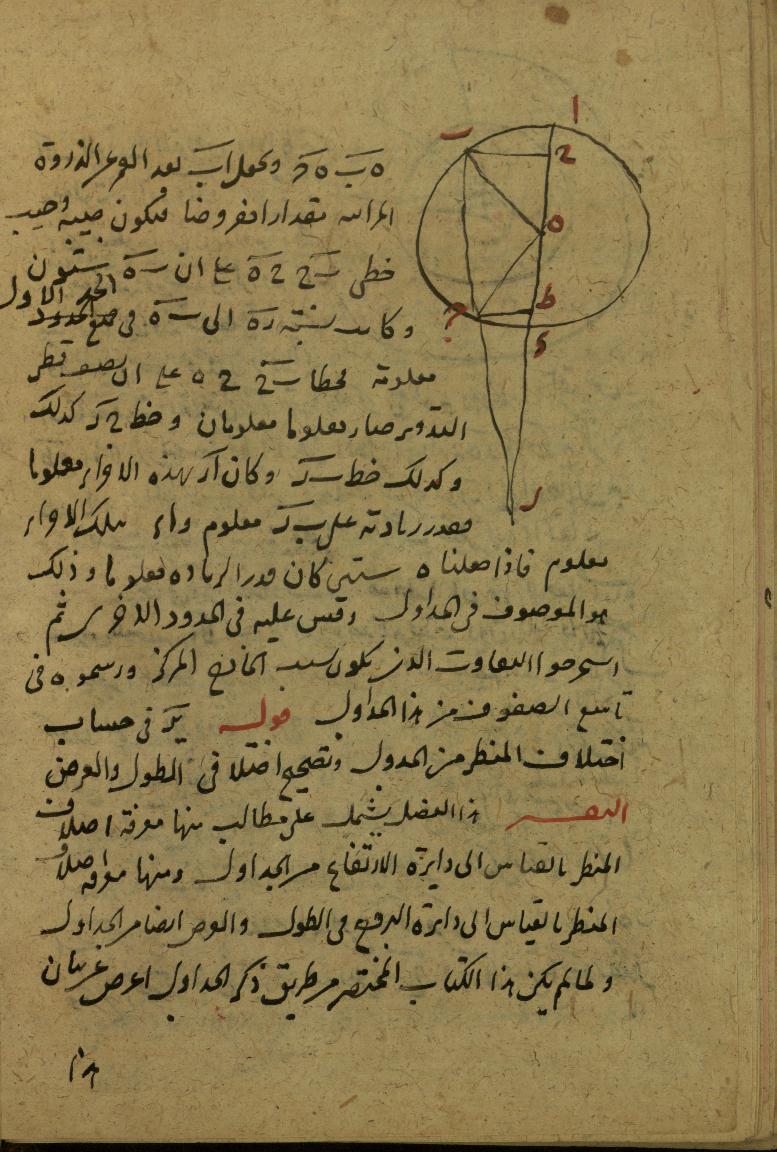 ا
ب
ح
ه
ط
ج
د
ر
ه ب ه ج ونجعل اب بعد القمر عن الذروة
المرئية مقدارا مفروضا فيكون جيبه وجيب
خطى ب ح ح ه على ان ب ه ستون
وكانت نسبة ر ه الى ب ه فى
الحد الاول
معلومة فخطا ب ح ح ه على ان نصف قطر
التدوير صار معلوما معلومان وخط ح ر كذلك
وكذلك خط ب ر وكان ا ر بهذه الاجزاء معلوما
فقدر زيادته على ب ر معلوم بتلك الاجزاء
معلوم فاذا جعلنا ه ستين كان قدر الزيادة معلوما وذلك
هو الموصوف فى الجداول وقس عليه فى الحدود الاخرى ثم
استخرجوا التفاوت الذى يكون بسبب الخارج المركز ورسموه فى
تاسع الصفوف من هذا الجداول قوله فى حساب
اختلاف المنظر من الجدول وتصحيح اختلافى الطول والعرض
التفسير هذا الفصل يشتمل على مطالب منها معرفة اختلاف
المنظر بالقياس الى دايرة الارتفاع من الجداول ومنها معرفة اختلاف
المنظر بالقياس الى دايرة البروج فى الطول والعرض ايضا من الجداول
ولما لم يكن هذا الكتاب المختصر من طريق ذكر الجداول اعرض عن بيان